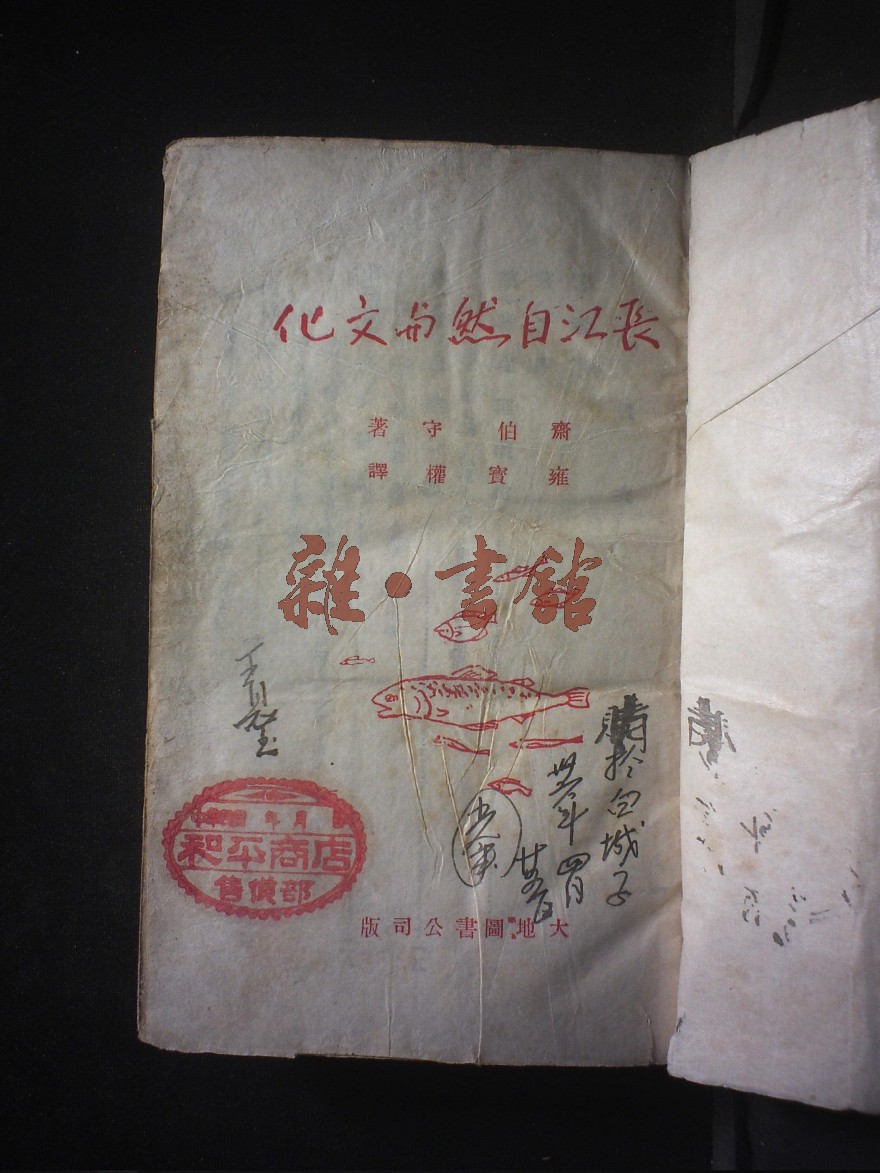 長江自然与文化
齋伯守著
雍寶權譯
雜·書館
購於白城子
年四月
廿五日
年 月
和平商店
售價部
大地圖書公司版